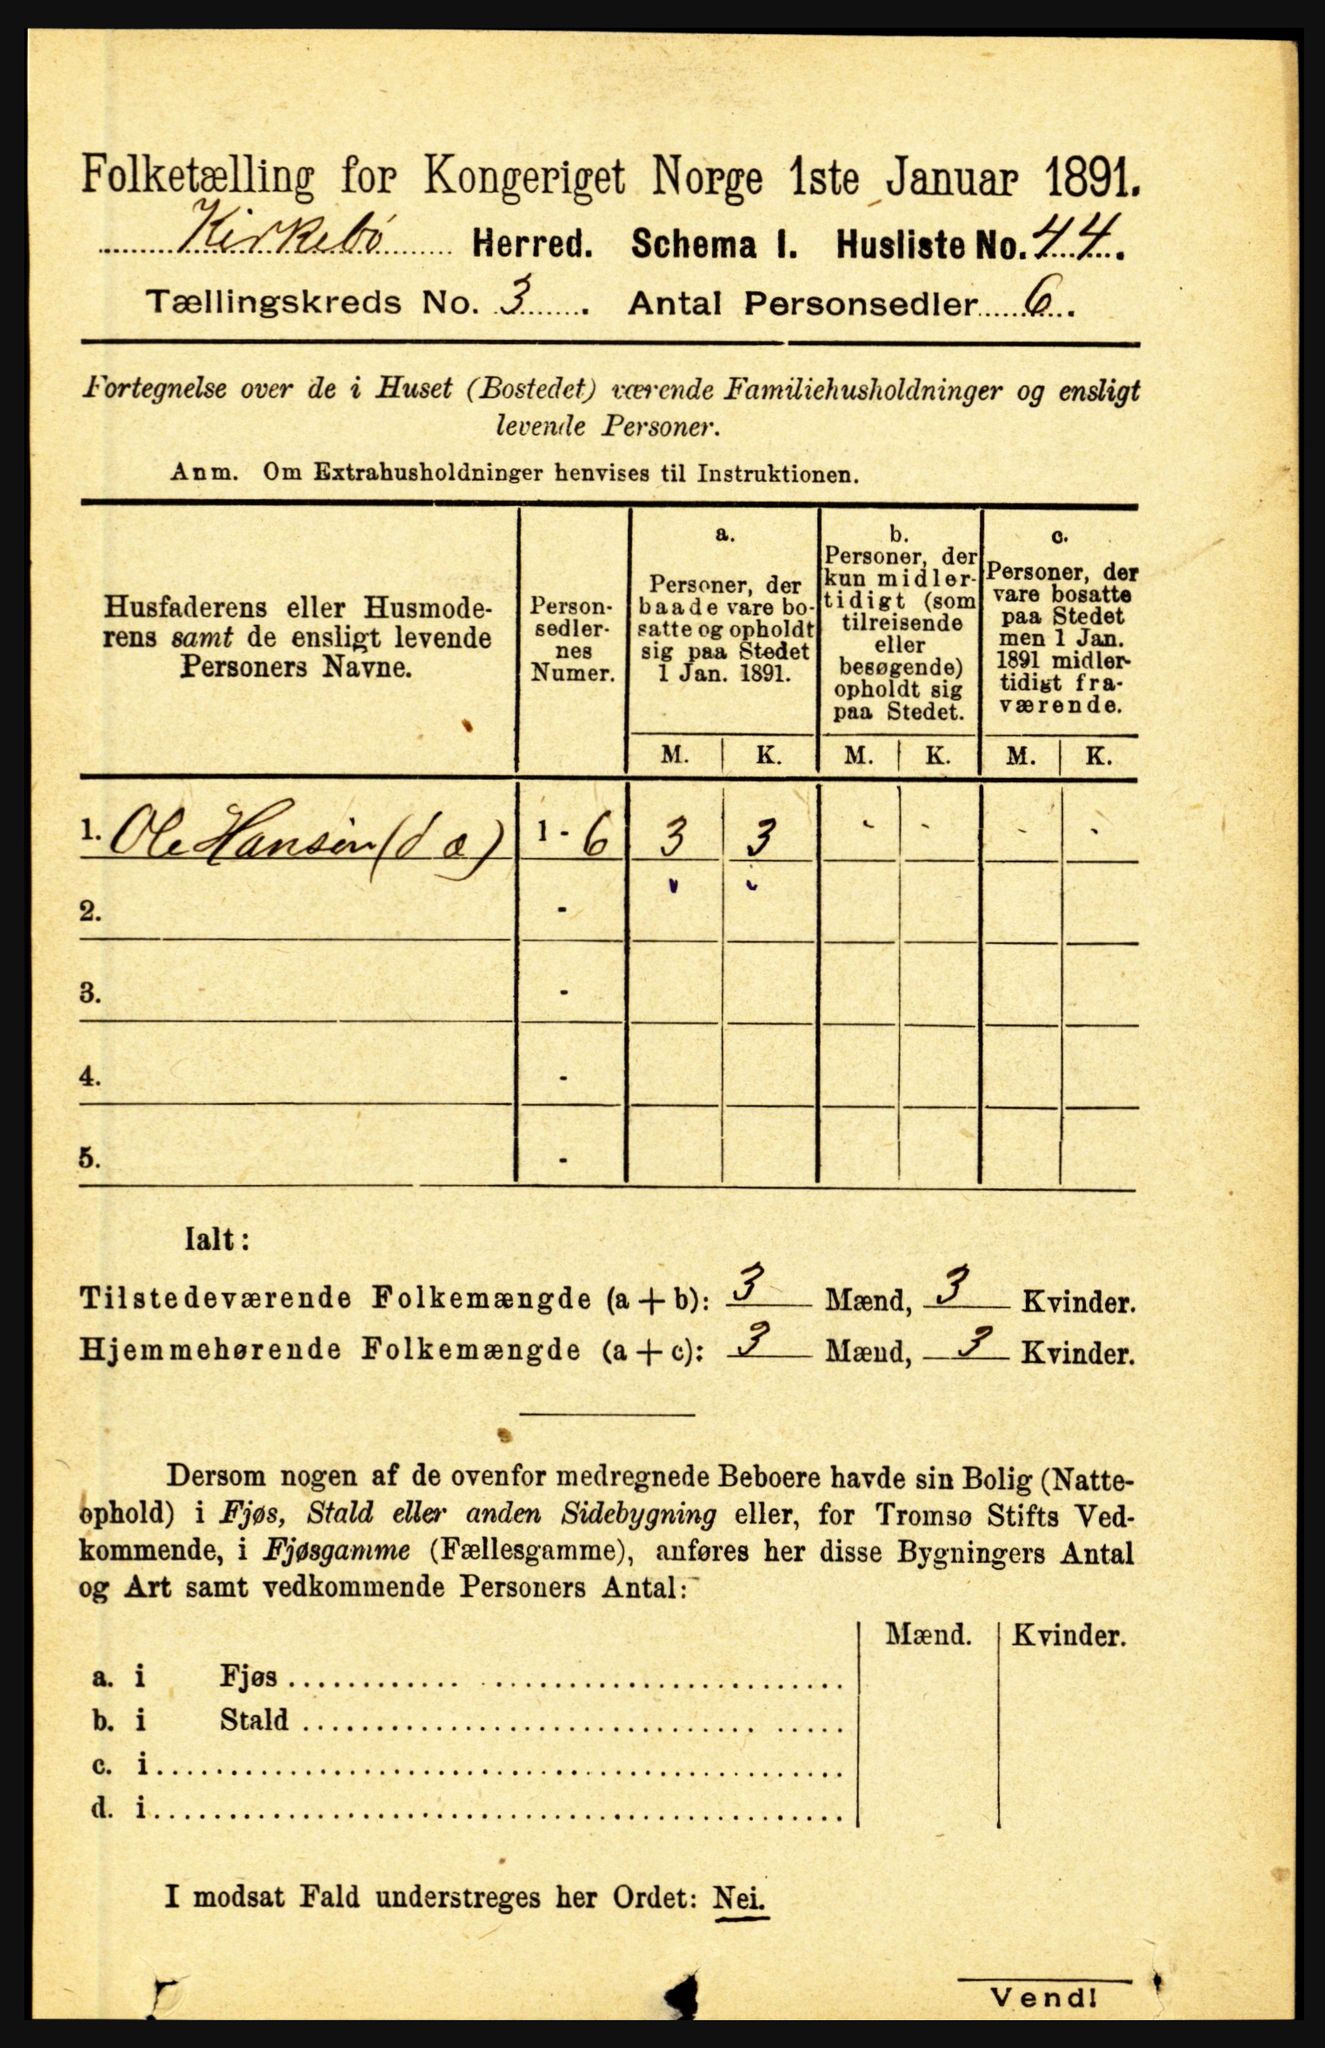 Folketælling for Kongeriget Norge 1ste Januar 1891.
Kirkebø Herred. Schema I. Husliste No. 44.
Tællingskreds No. 3. Antal Personsedler 6.
Fortegnelse over de i Huset (Bostedet) værende Familiehusholdninger og ensligt
levende Personer.
Anm. Om Extrahusholdninger henvises til Instruktionen.
Husfaderens eller Husmode-
rens samt de ensligt levende
Personers Navne.
Person-
sedler-
nes
Numer.
a.
Personer, der
baade vare bo-
satte og opholdt
sig paa Stedet
1 Jan. 1891.
b.
Personer, der
kun midler-
tidigt (som
tilreisende
eller
besøgende)
opholdt sig
paa Stedet.
c.
Personer, der
vare bosatte
paa Stedet
men 1 Jan.
1891 midler-
tidigt fra-
værende.
M. K. M. K. M. K.
1. Ole Hansen (d æ) 1 - 6 3 3 - - - -
2. -
3. -
4. -
5. -
Ialt:
Tilstedeværende Folkemængde (a + b): 3 Mænd, 3 Kvinder.
Hjemmehørende Folkemængde (a + c): 3 Mænd, 3 Kvinder.
Dersom nogen af de ovenfor medregnede Beboere havde sin Bolig (Natte-
ophold) i Fjøs, Stald eller anden Sidebygning eller, for Tromsø Stifts Ved-
kommende, i Fjøsgamme (Fællesgamme), anføres her disse Bygningers Antal
og Art samt vedkommende Personers Antal:
Mænd. Kvinder.
a. i Fjøs
b. i Stald
c. i
d. i
I modsat Fald understreges her Ordet: Nei.
Vend!